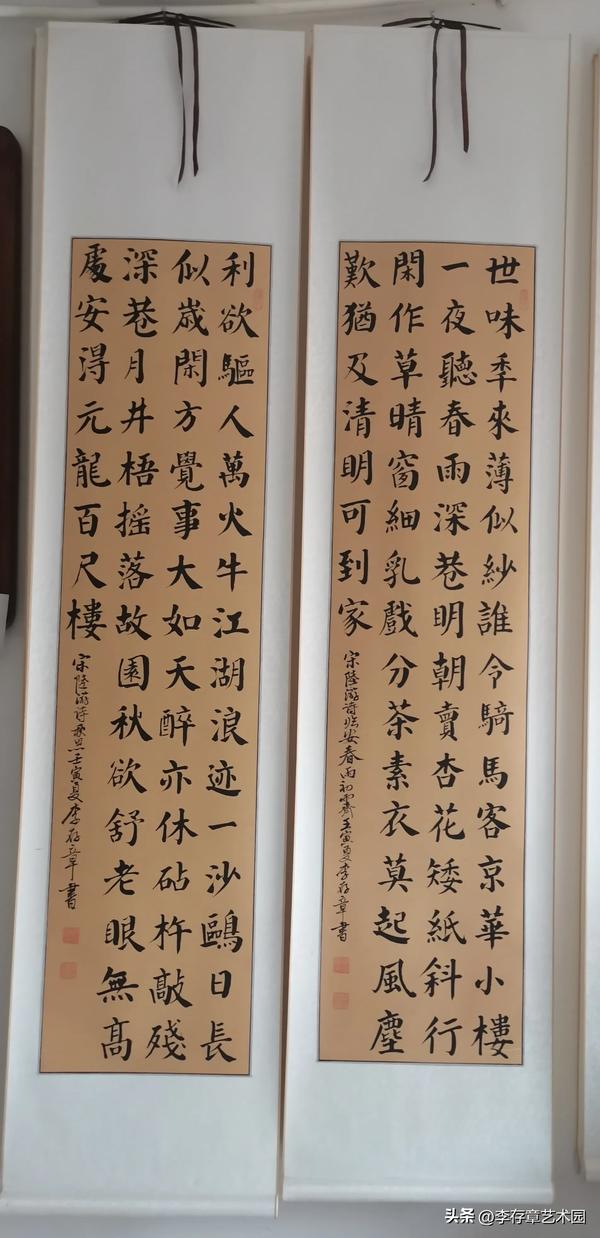 世味秊來薄似紗誰令騎馬客京華小樓
一夜聽春雨深巷明朝賣杏花矮紙斜行
閑作草晴窗細乳戲分茶素衣莫起風塵
歎猶及清明可到家
宋陸游詩臨安春雨初霽壬寅夏李存章書
利欲驅人萬火牛江湖浪迹一沙鷗日長
似歲閑方覺事大如天醉亦休砧杵敲殘
深巷月井梧搖落故園秋欲舒老眼無高
處安得元龍百尺樓
宋陸游詩秋思壬寅夏李存章書
头条 @李存章艺术园